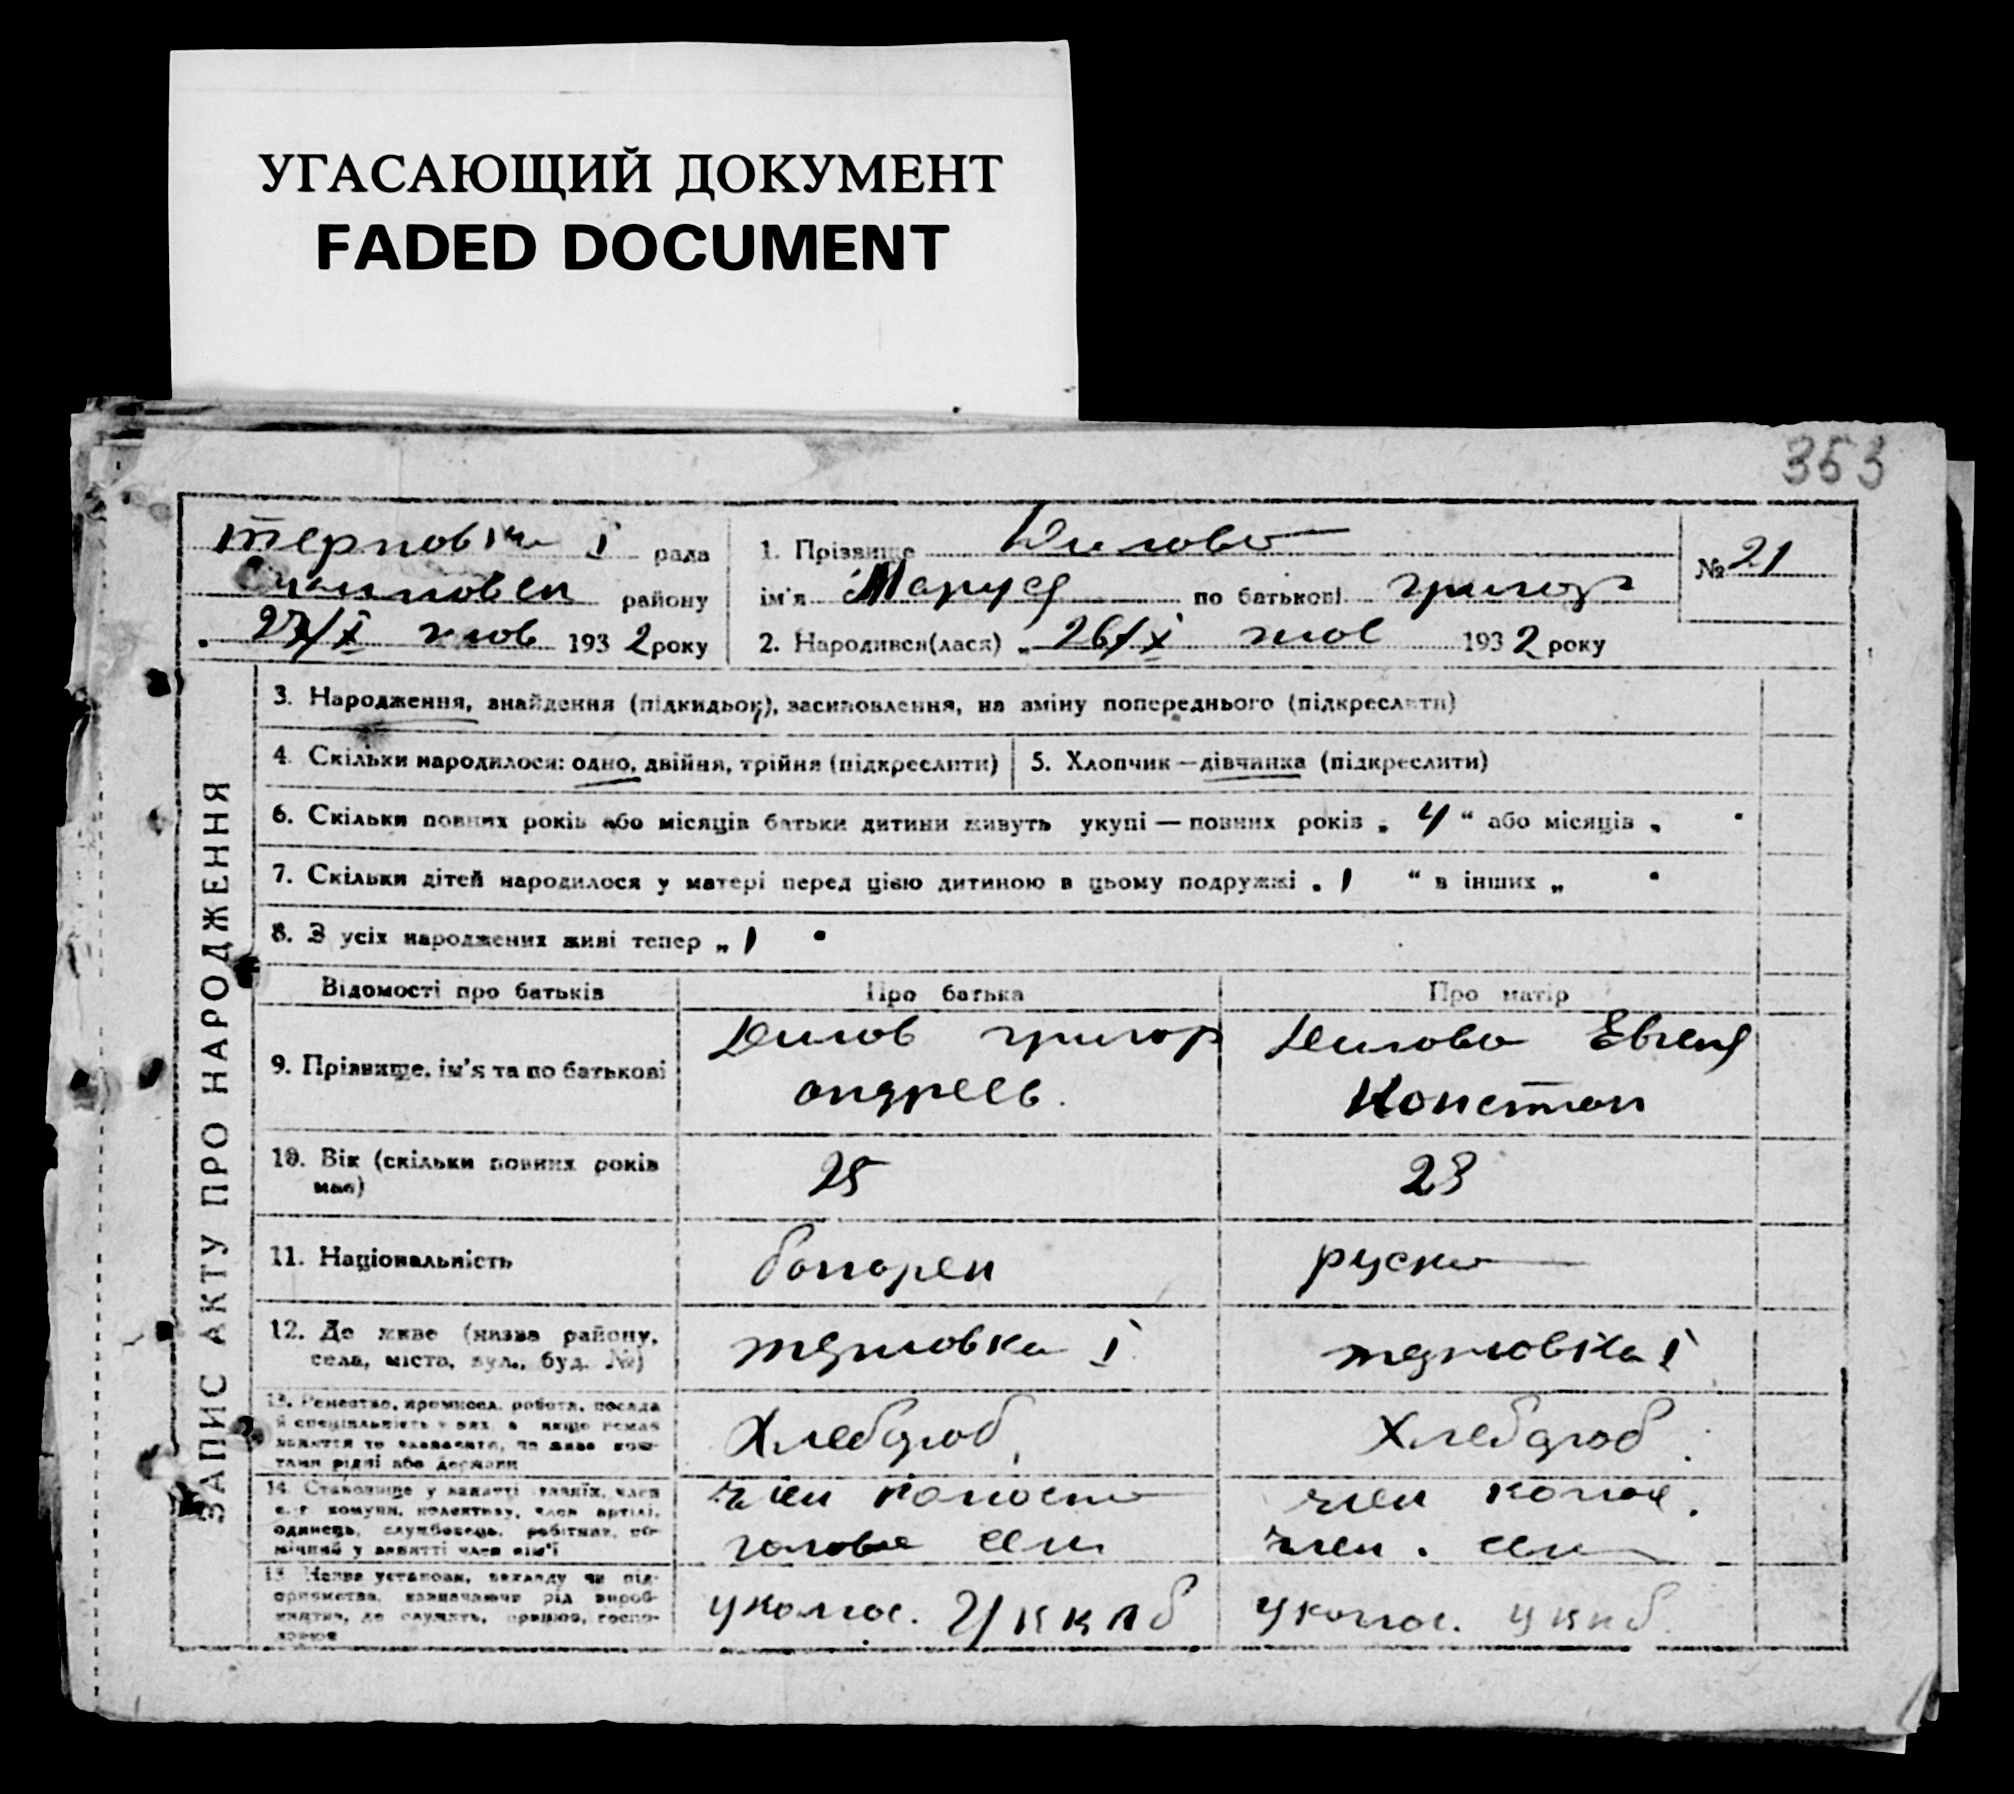 УГАСАЮЩИЙ ДОКУМЕНТ
FADED DOCUMENT
353
Терновка I рада
району
27/X жов 1932 року
1. Прізвище Дилова
ім'я Маруся по батькові григор
2. Народився(лася) „ 26/X жов 1932 року
№ 21
ЗАПИС АКТУ ПРО НАРОДЖЕННЯ
3. Народження, знайдення (підкидьок), засиновлення, на зміну попереднього (підкреслити)
4. Скільки народилося: одно, двійня, трійня (підкреслити)
5. Хлопчик — дівчинка (підкреслити)
6. Скільки повних років або місяців батьки дитини живуть укупі — повних років „ 4 “ або місяців „
7. Скільки дітей народилося у матері перед цією дитиною в цьому подружжі „ 1 “ в інших „
8. З усіх народжених живі тепер „ 1 "
Відомості про батьків Про батька Про матір
9. Прізвище, ім'я та по батькові
Дилов григор
андреев.
Дилова Евгения
Констан
10. Вік (скільки повних років має)
25
23
11. Національність
болгарен
руска
12. Де живе (назва району,
села, міста, вул., буд. №)
терновка I
терновка I
13. Ремество, промисел, робота, посада
й спеціальність в них, а якщо немає
заняття то зазначити, чи живе кош-
тами рідні або держави
Хлебороб
Хлебороб.
14. Становище у занятті
комуни, колективу, член артілі,
одинець, службовець, робітник, по-
мічний у занятті член сім'ї
член колгоспа
голова сем
член колгос.
член. сем
15. Назва установи, закладу чи під-
приємства, зазначаючи рід вироб-
ництва, де служить, працює, госпо-
дарює
у колгос.
у колгос.